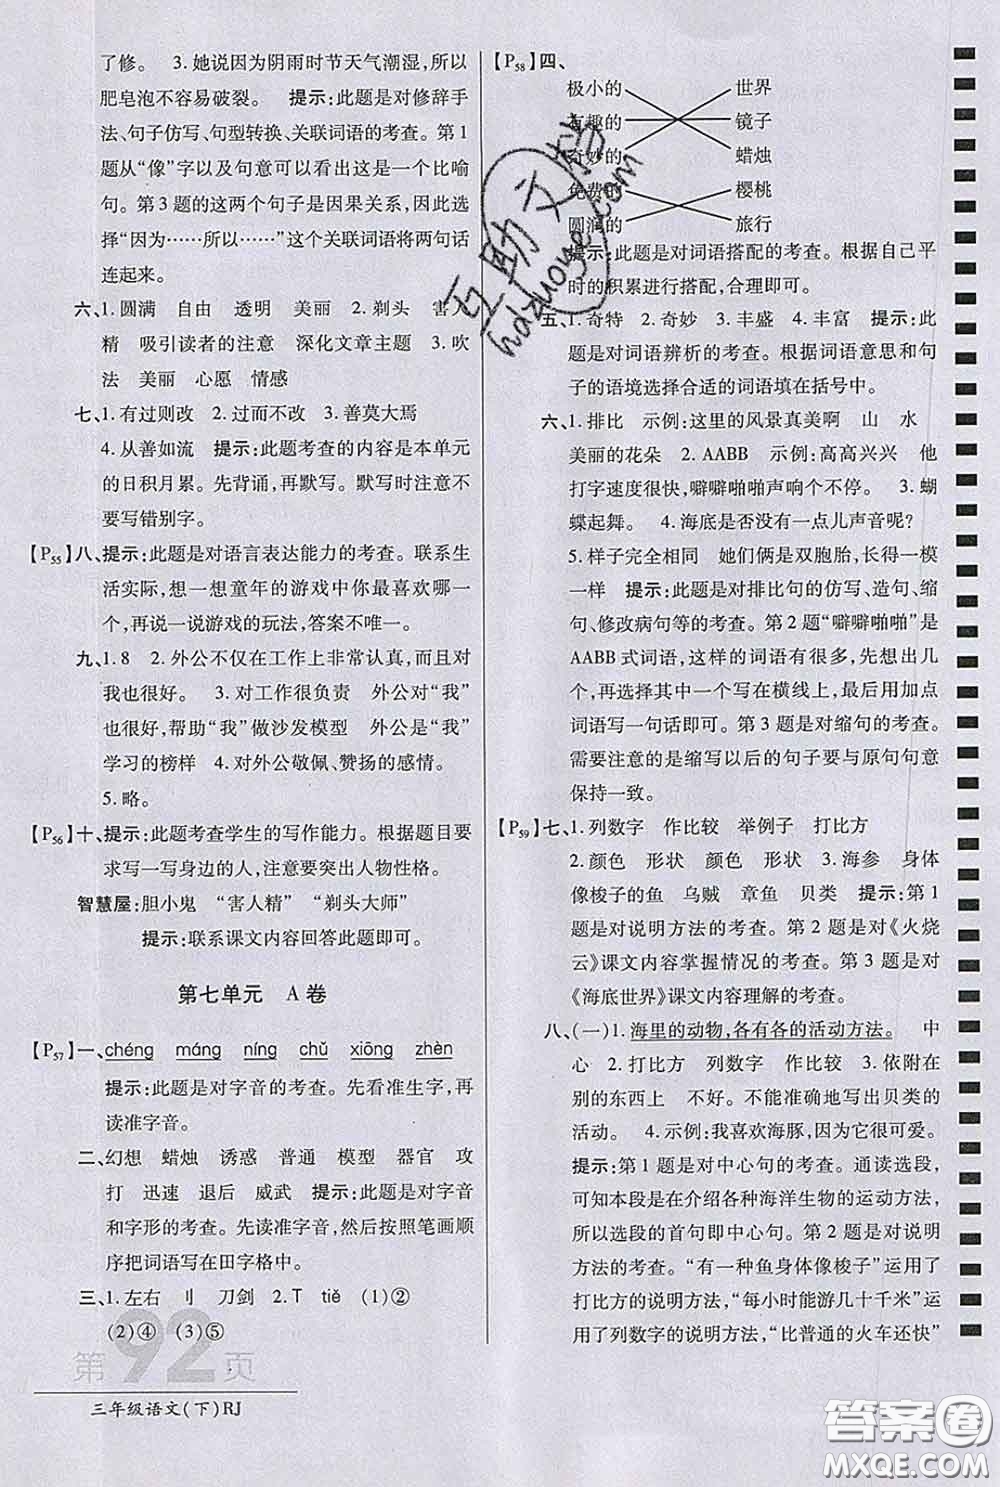 了修。　3. 她说因为阴雨时节天气潮湿,所以
肥皂泡不容易破裂。　提示:此题是对修辞手
法、句子仿写、句型转换、关联词语的考查。第 1
题从“像”字以及句意可以看出这是一个比喻
句。第 3 题的这两个句子是因果关系,因此选
择“因为……所以……”这个关联词语将两句话
连起来。
六、1. 圆满　自由　透明　美丽　2. 剃头　害人
精　吸引读者的注意　深化文章主题　3. 吹
法　美丽　心愿　情感
七、1. 有过则改　2. 过而不改　3. 善莫大焉
4. 从善如流　提示:此题考查的内容是本单元
的日积月累。先背诵,再默写。默写时注意不
要写错别字。
【P55】八、提示:此题是对语言表达能力的考查。联系生
活实际,想一想童年的游戏中你最喜欢哪一
个,再说一说游戏的玩法,答案不唯一。
九、1. 8　2. 外公不仅在工作上非常认真,而且对
我也很好。　3. 对工作很负责　外公对“我”
也很好,帮助“我”做沙发模型　外公是“我”
学习的榜样　4. 对外公敬佩、赞扬的感情。
5. 略。
【P56】十、提示:此题考查学生的写作能力。根据题目要
求写一写身边的人,注意要突出人物性格。
智慧屋:胆小鬼　“害人精”　“剃头大师”
提示:联系课文内容回答此题即可。
第七单元　A 卷
【P57】一、chéng　máng　níng　chǔ　xiōng　zhèn
提示:此题是对字音的考查。先看准生字,再
读准字音。
二、幻想　蜡烛　诱惑　普通　模型　器官　攻
打　迅速　退后　威武　提示:此题是对字音
和字形的考查。先读准字音,然后按照笔画顺
序把词语写在田字格中。
三、1. 左右　刂　刀剑　2. T　tiě　(1)②
(2)④　(3)⑤
第92页
三年级语文(下)RJ
【P58】四、
极小的　世界
有趣的　镜子
奇妙的　蜡烛
免费的　樱桃
圆润的　旅行
提示:此题是对词语搭配的考查。根据自己平
时的积累进行搭配,合理即可。
五、1. 奇特　2. 奇妙　3. 丰盛　4. 丰富　提示:此
题是对词语辨析的考查。根据词语意思和句
子的语境选择合适的词语填在括号中。
六、1. 排比　示例:这里的风景真美啊　山　水
美丽的花朵　2. AABB　示例:高高兴兴　他
打字速度很快,噼噼啪啪声响个不停。　3. 蝴
蝶起舞。　4. 海底是否没有一点儿声音呢?
5. 样子完全相同　她们俩是双胞胎,长得一模
一样　提示:此题是对排比句的仿写、造句、缩
句、修改病句等的考查。第 2 题“噼噼啪啪”是
AABB 式词语,这样的词语有很多,先想出几
个,再选择其中一个写在横线上,最后用加点
词语写一句话即可。第 3 题是对缩句的考查。
需要注意的是缩写以后的句子要与原句句意
保持一致。
【P59】七、1. 列数字　作比较　举例子　打比方
2. 颜色　形状　颜色　形状　3. 海参　身体
像梭子的鱼　乌贼　章鱼　贝类　提示:第 1
题是对说明方法的考查。第 2 题是对《火烧
云》课文内容掌握情况的考查。第 3 题是对
《海底世界》课文内容理解的考查。
八、(一)1. 海里的动物,各有各的活动方法。　中
心　2. 打比方　列数字　作比较　3. 依附在
别的东西上　不好。不能准确地写出贝类的
活动。　4. 示例:我喜欢海豚,因为它很可爱。
提示:第 1 题是对中心句的考查。通读选段,
可知本段是在介绍各种海洋生物的运动方法,
所以选段的首句即中心句。第 2 题是对说明
方法的考查。“有一种鱼身体像梭子”运用了
打比方的说明方法,“每小时能游几十千米”运
用了列数字的说明方法,“比普通的火车还快”
互助文档
hdzuoye.com
答案卷
MXQE.COM